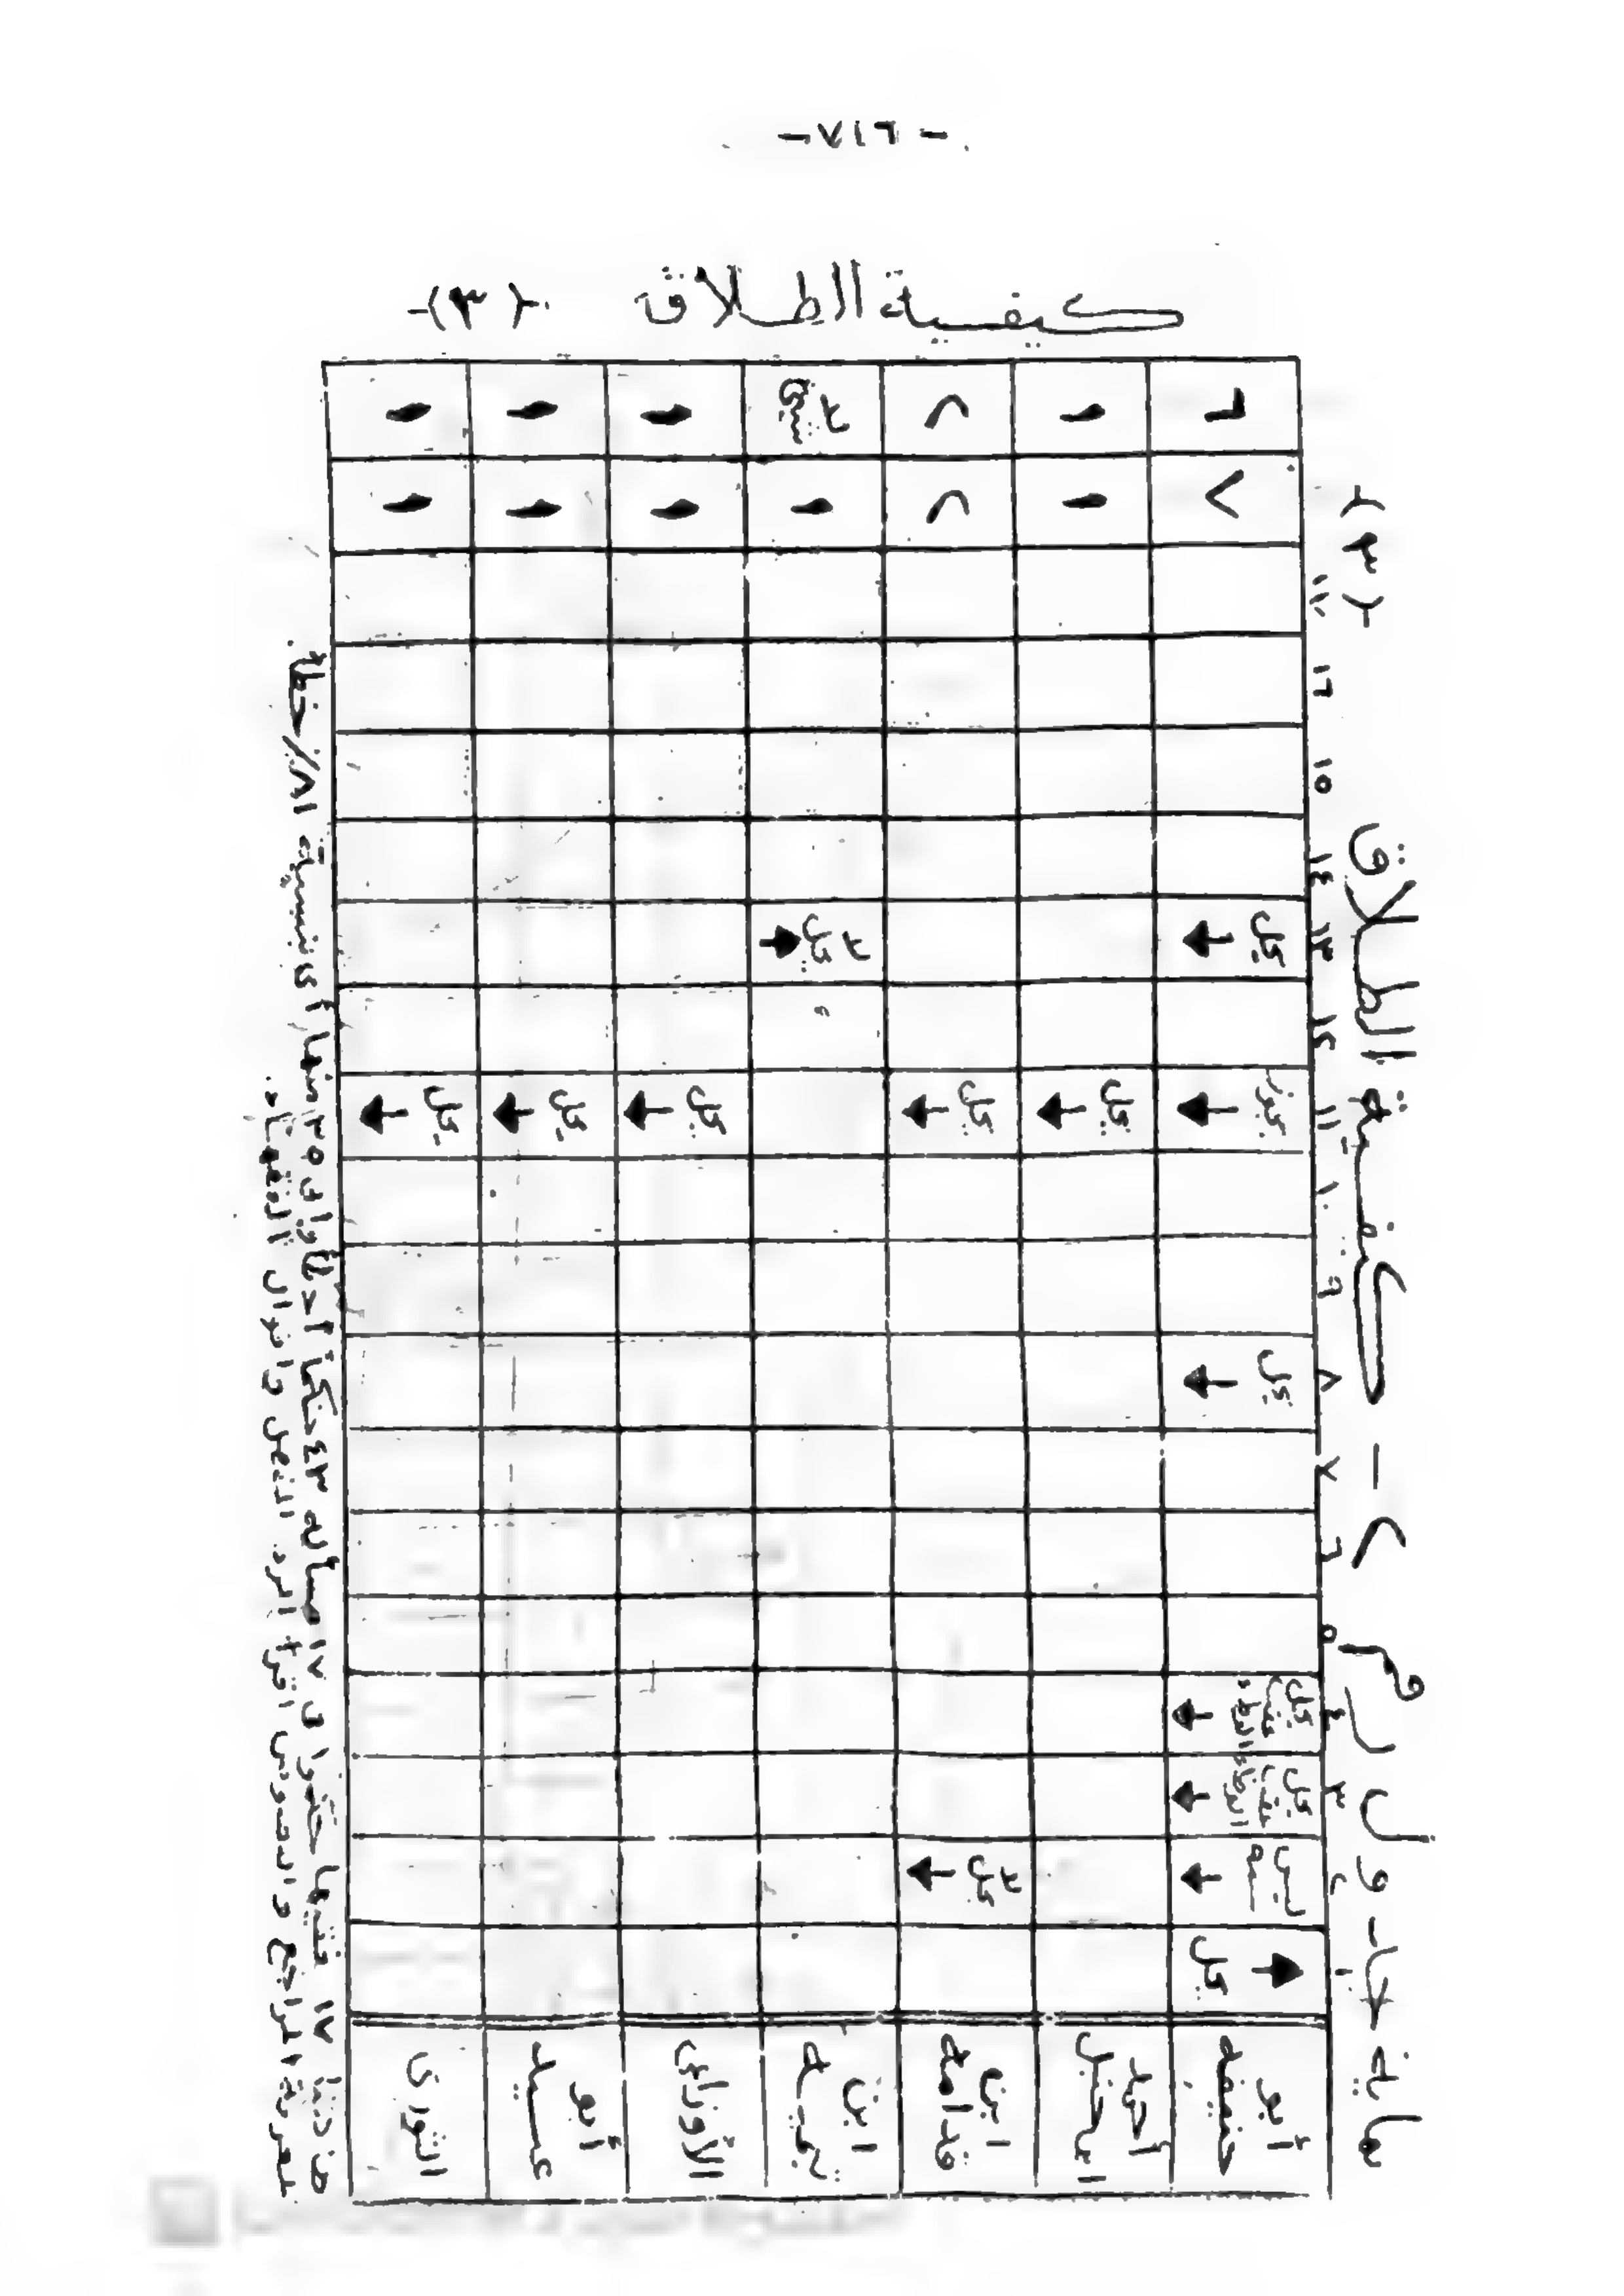 - ٧١٦ -
كيفية الطلاق (٣)
نهاية جداول رقم ٢ - كيفية الطلاق (٣)
١ ٢ ٣ ٤ ٥ ٦ ٧ ٨ ٩ ١٠ ١١ ١٢ ١٣ ١٤ ١٥ ١٦ ١٧
أبو حنيفه يحل ليس سنه يحل عقب الوطء يحل عقب الوطء يحل يجوز يحل ٧ ٦
أحمد ابن حنبل يحل ١ ١
ابن قدامه لا يحل يحل ٢ ٢
ابن تيميه لا يحل ١ لا شئ
الأوزاعى يحل ١ ١
أبو عبيد يحل ١ ١
الثورى يحل ١ ١
١٧ فقيها حكموا فى ١٧ مسأله ٤٣ حكما وان ٣٥ منها أى بنسبة ٨١٪ خطأ.
لمعرفة المراجع والنصوص اقرأ الرد النص واقوال الفقهاء.